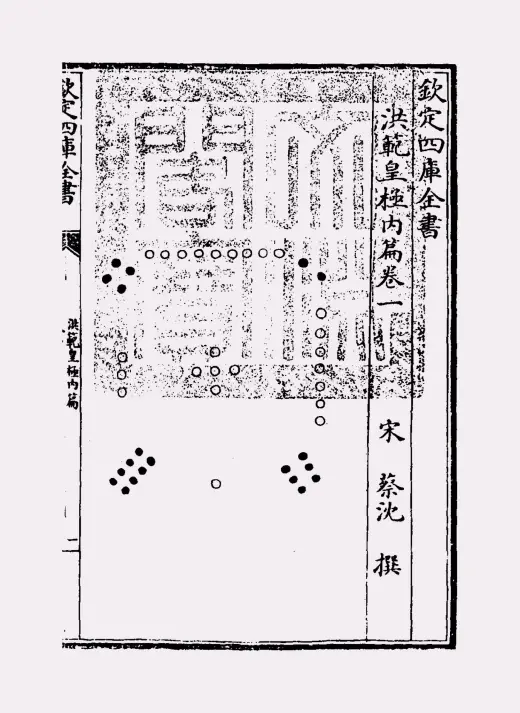 欽定四庫全書
洪範皇極內篇卷一
宋 蔡沈 撰
欽定四庫全書
洪範皇極內篇
二